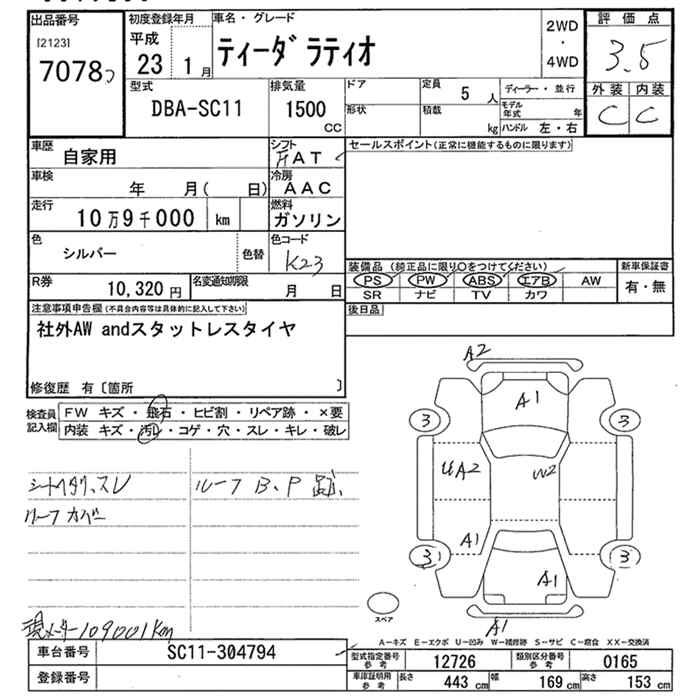 出品番号 初度登録年月 車名・グレード 2WD・4WD 評価点
[2123] 平成
7078 23 1月 ティーダ ラティオ 3.5
型式 排気量 ドア 定員 5人 ディーラー・並行 外装 内装
DBA-SC11 1500 CC 形状 積載 kg モデル年式 年 C C
ハンドル 左・右
車歴 自家用 シフト AT セールスポイント(正常に機能するものに限ります)
車検 年 月( 日) 冷房 AAC
走行 10万9千000 km 燃料 ガソリン
色 シルバー 色替 色コード K23
装備品 (純正品に限り○をつけてください) 新車保証書
PS PW ABS エアB AW 有・無
SR ナビ TV カワ
R券 10,320円 名変通知期限 月 日
後日品
注意事項申告欄(不具合内容等は具体的に記入して下さい)
社外AW andスタットレスタイヤ
修復歴 有〔箇所 〕
検査員記入欄 FW キズ・飛石・ヒビ割・リペア跡・×要
内装 キズ・汚レ・コゲ・穴・スレ・キレ・破レ
ルーフ B.P 跡、
ルーフ カバー
現メーター109001Km
A2
A1
3 3
UA2 W2
A1
3 3
A1
スペア
A1
A-キズ E-エクボ U-凹み W-補修跡 S-サビ C-腐食 XX-交換済
車台番号 SC11-304794 型式指定番号 参考 12726 類別区分番号 参考 0165
登録番号 車庫証明用 参考 長さ 443cm 幅 169cm 高さ 153cm